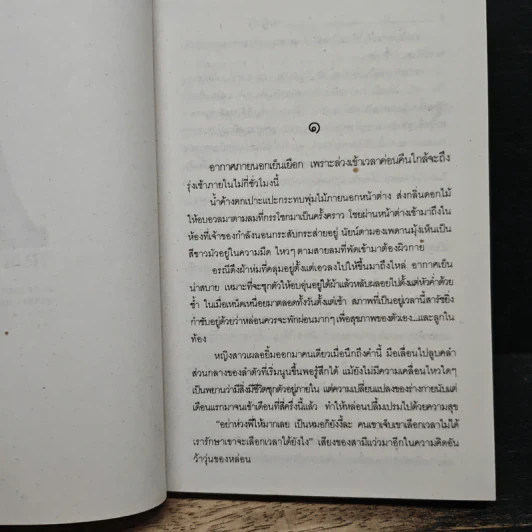 ๑
อากาศภายนอกเย็นเยือก เพราะล่วงเข้าเวลาค่อนคืนใกล้จะถึง
รุ่งเช้าภายในไม่กี่ชั่วโมงนี้
น้ำค้างตกเปาะแปะกระทบพุ่มไม้ภายนอกหน้าต่าง ส่งกลิ่นดอกไม้
ให้อบอวลมาตามลมที่กรรโชกมาเป็นครั้งคราว ไชยผ่านหน้าต่างเข้ามาถึงใน
ห้องที่เจ้าของกำลังนอนกระสับกระส่ายอยู่ นัยน์ตามองเพดานมุ้งเห็นเป็น
สีขาวมัวอยู่ในความมืด ไหวๆ ตามสายลมที่พัดเข้ามาต้องผิวกาย
อรณีดึงผ้าห่มที่คลุมอยู่ตั้งแต่เอวลงไปให้ขึ้นมาถึงไหล่ อากาศเย็น
น่าสบาย เหมาะที่จะซุกตัวให้อบอุ่นอยู่ใต้ผ้าแล้วหลับผล็อยไปตั้งแต่หัวค่ำด้วย
ซ้ำ ในเมื่อเหน็ดเหนื่อยมาตลอดทั้งวันตั้งแต่เช้า สภาพที่เป็นอยู่เวลานี้สารัชยิ่ง
กำชับอยู่ด้วยว่าหล่อนควรจะพักผ่อนมากๆ เพื่อสุขภาพของตัวเอง...และลูกใน
ท้อง
หญิงสาวเผลอยิ้มออกมาคนเดียวเมื่อนึกถึงคำนี้ มือเลื่อนไปลูบคลำ
ส่วนกลางของลำตัวที่เริ่มนูนขึ้นพอรู้สึกได้ แม้ยังไม่มีความเคลื่อนไหวใดๆ
เป็นพยานว่ามีสิ่งมีชีวิตซุกตัวอยู่ภายใน แต่ความเปลี่ยนแปลงของร่างกายนับแต่
เดือนแรกมาจนเข้าเดือนที่สี่ครึ่งนี้แล้ว ทำให้หล่อนปลื้มเปรมไปด้วยความสุข
"อย่าห่วงพี่ให้มากเลย เป็นหมอก็ยังงี้ละ คนเขาเจ็บเขาเลือกเวลาไม่ได้
เรารักษาเขาจะเลือกเวลาได้ยังไง" เสียงของสามีแว่วมาอีกในความคิดอัน
ว้าวุ่นของหล่อน